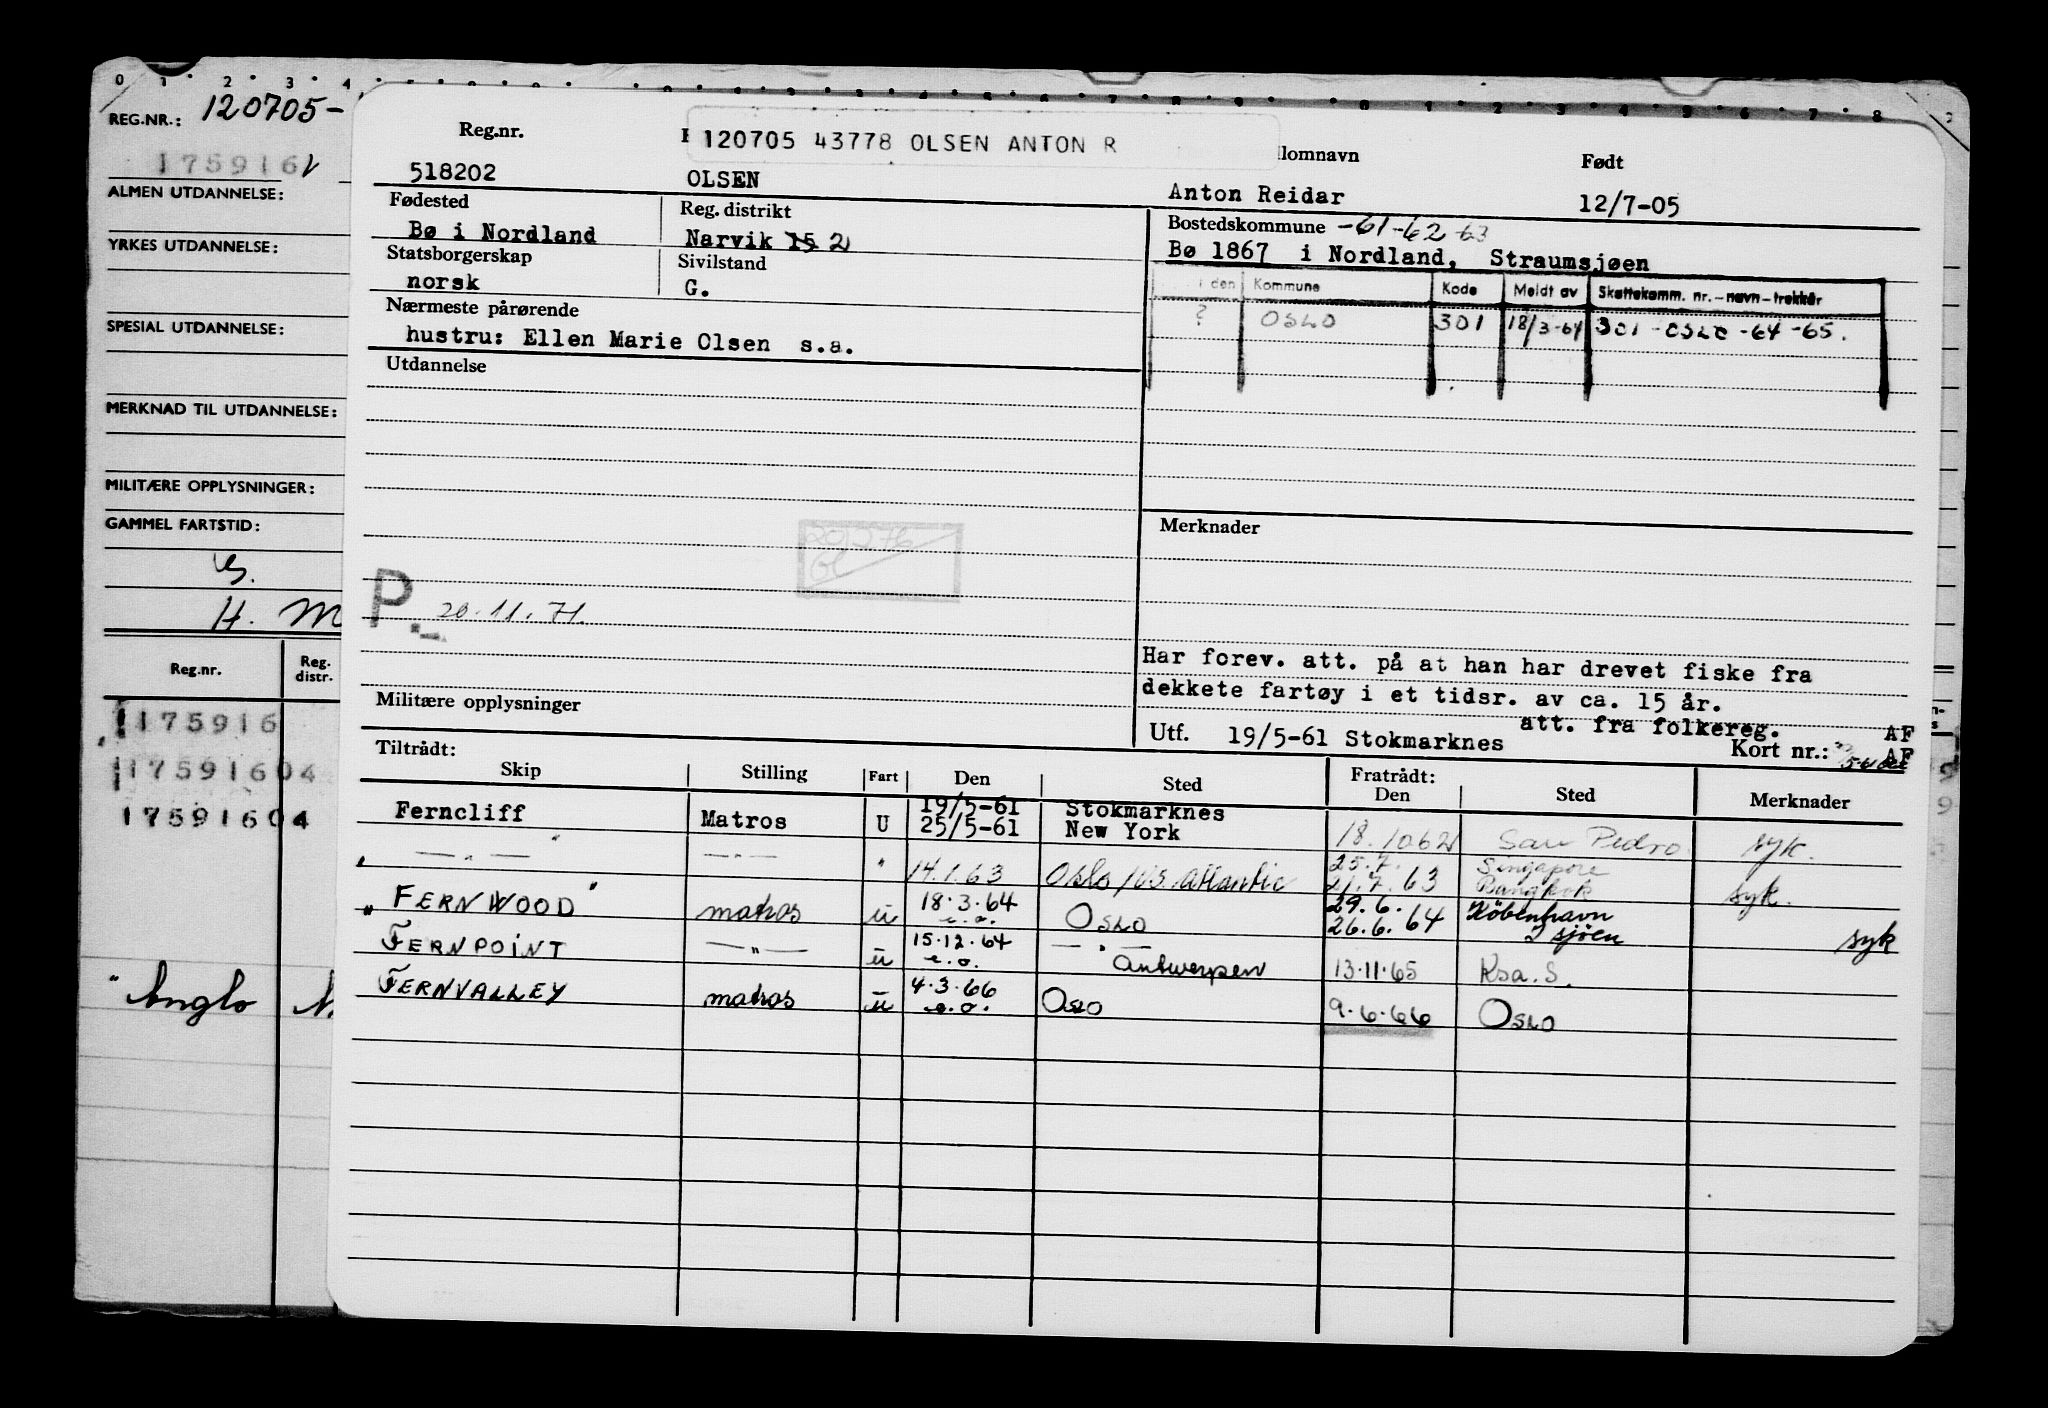 0 1 2 3 4
REG.NR.: 120705-
1759161
ALMEN UTDANNELSE:
YRKES UTDANNELSE:
SPESIAL UTDANNELSE:
MERKNAD TIL UTDANNELSE:
MILITÆRE OPPLYSNINGER:
GAMMEL FARTSTID:
H. M
Reg.nr. Reg. distr.
175916
17591604
17591604
" Anglo N.
120705 43778 OLSEN ANTON R
Reg.nr. llomnavn Født
518202 OLSEN Anton Reidar 12/7-05
Fødested Reg. distrikt Bostedskommune -61-62-63
Bø i Nordland Narvik 15 2 Bø 1867 i Nordland, Straumsjøen
Statsborgerskap Sivilstand
norsk G.
i den Kommune Kode Meldt av Skattekomm. nr. - navn - trekkår
? OSLO 301 18/3-64 301 - OSLO -64 -65.
Nærmeste pårørende
hustru: Ellen Marie Olsen s.a.
Utdannelse
Merknader
P. 20.11.71.
Har forev. att. på at han har drevet fiske fra
dekkete fartøy i et tidsr. av ca. 15 år.
att. fra folkereg. AF
Militære opplysninger
Utf. 19/5-61 Stokmarknes Kort nr.: AF
Tiltrådt: Fratrådt:
Skip Stilling Fart Den Sted Den Sted Merknader
Ferncliff Matros U 19/5-61 Stokmarknes
25/5-61 New York 18.10 62 San Pedro syk.
— " — — " — " 14.1.63 Oslo / U.S. Atlantic 25.7. Singapore
21.7.63 Bangkok syk.
" FERNWOOD " matros u 18.3.64 e.o. Oslo 29.6. København
26.6.64 I sjøen syk
FERNPOINT — " — u 15.12.64 e.o. — " — Antwerpen 13.11.65 Ksa. S.
FERNVALLEY matros u 4.3.66 e.o. Oslo 9.6.66 Oslo